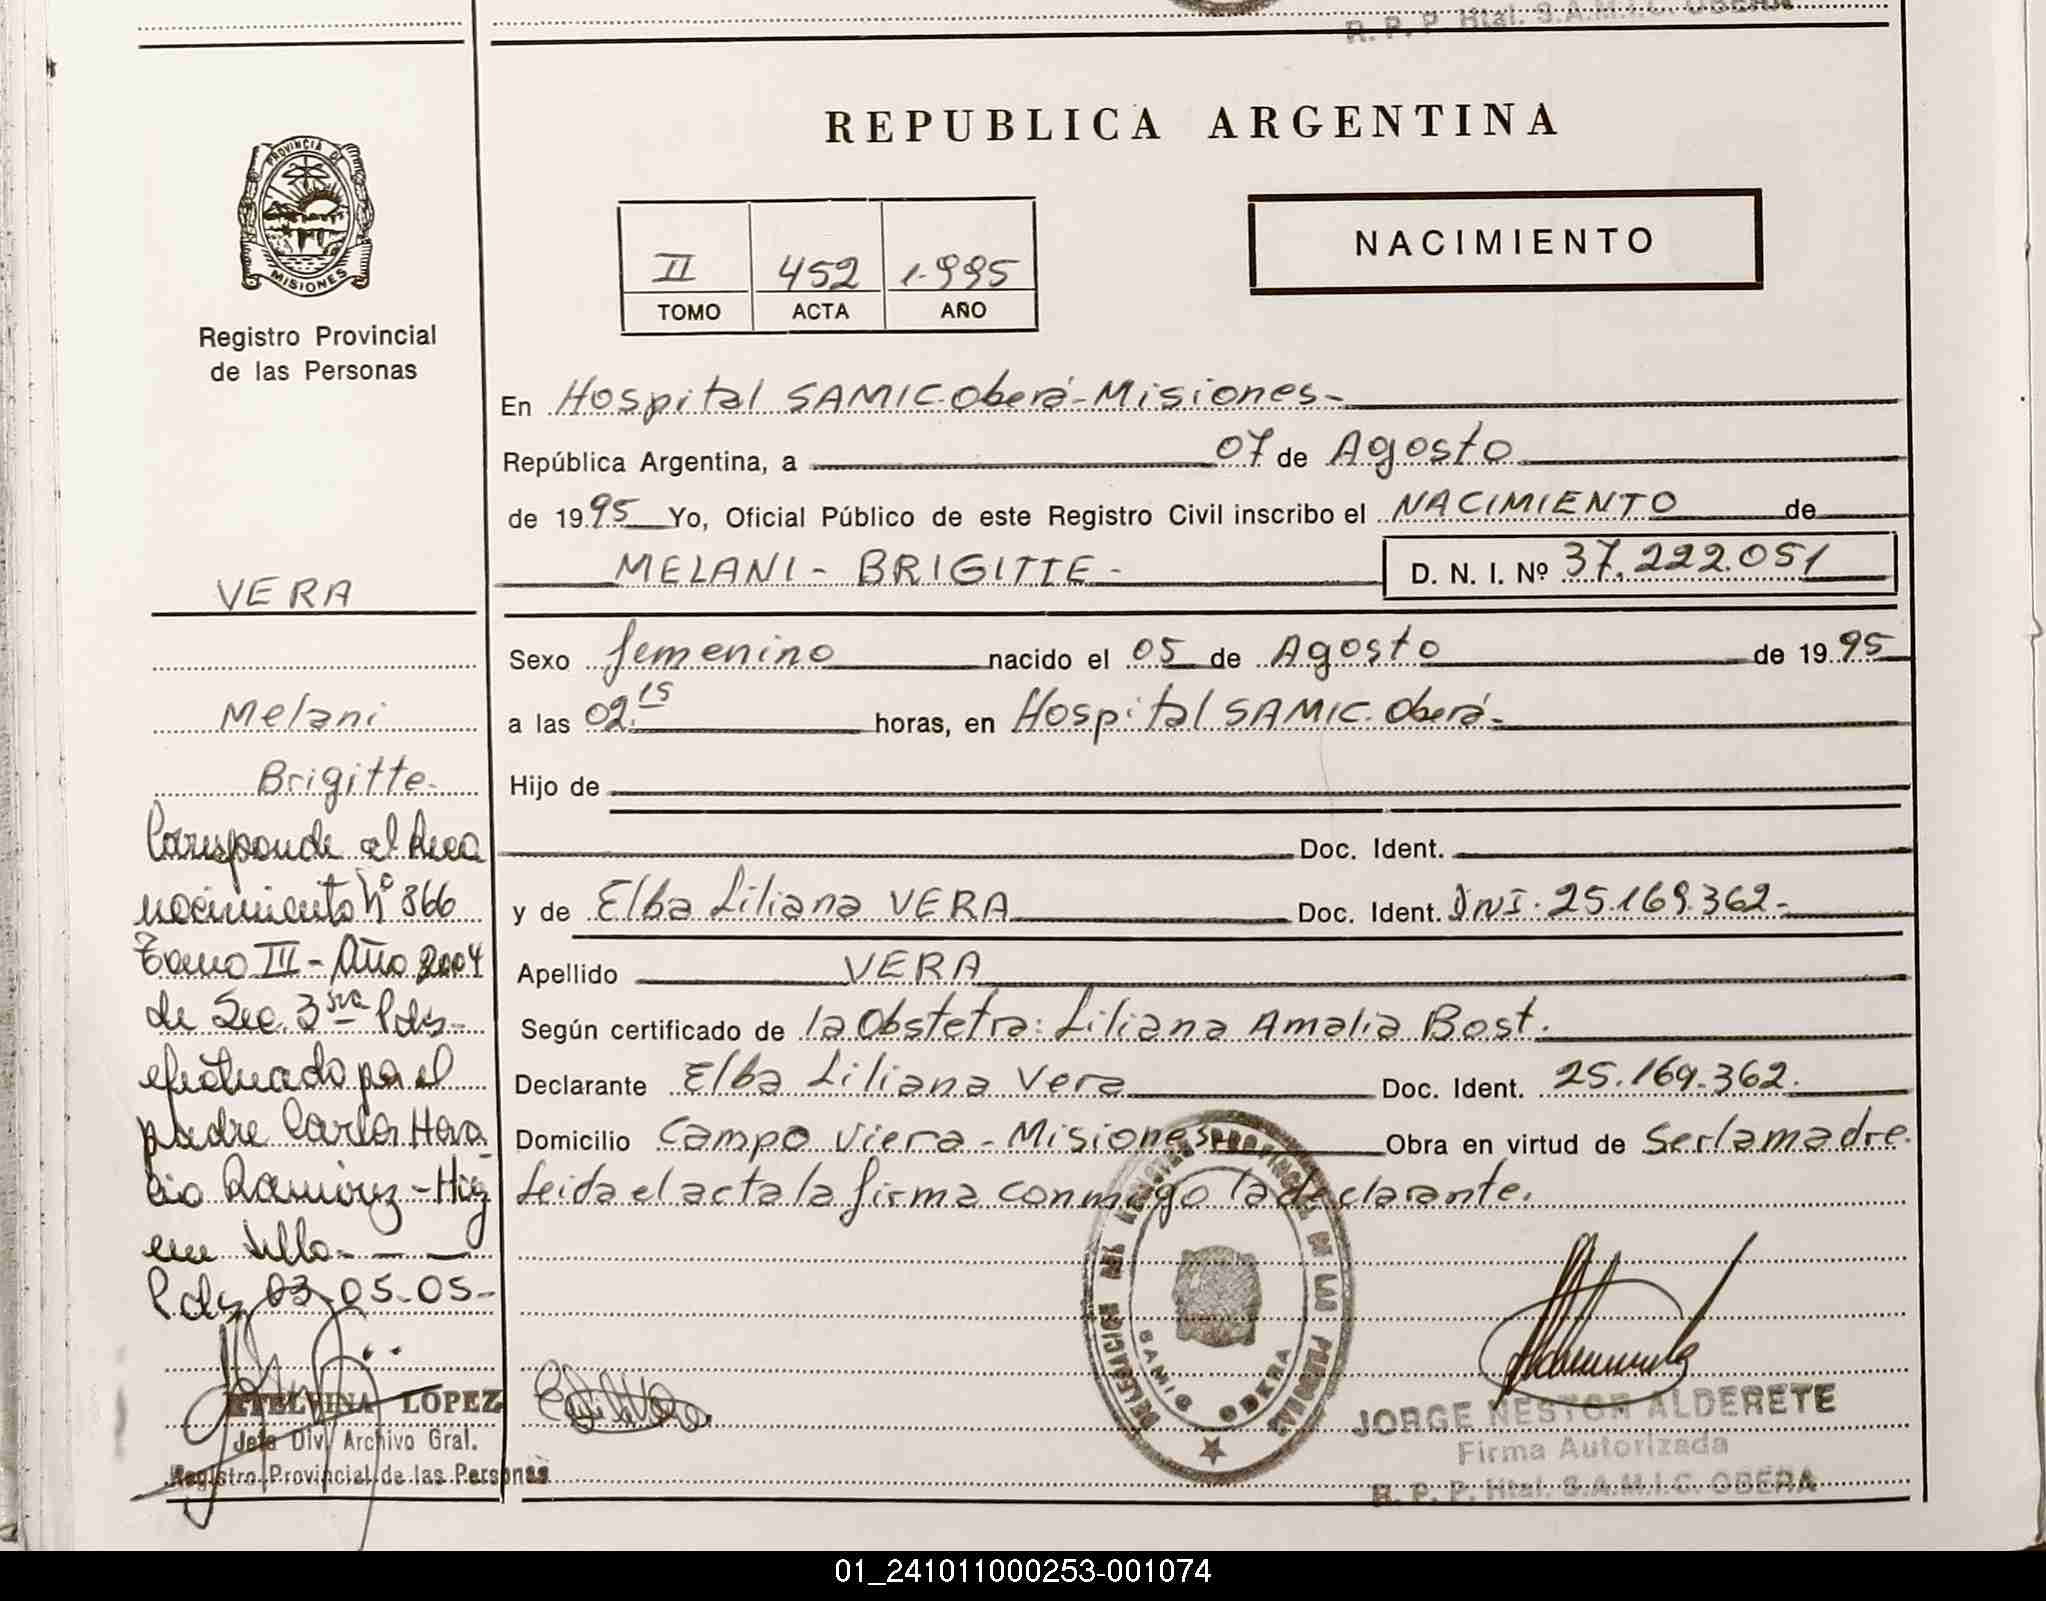 R. P. P. Htal. S.A.M.I.C. OBERA
PROVINCIA DE
MISIONES
Registro Provincial
de las Personas
VERA
Melani
Brigitte-
Corresponde al Reco
nocimiento Nº 366
Tomo III - Año 2004
de Sec. 3ra Pdas-
efectuado por el
padre Carlos Hora
cio Ramirez - Hig
em sello- — —
Pdas 03-05-05-
ETELVINA LOPEZ
Jefa Div. Archivo Gral.
Registro Provincial de las Personas
REPUBLICA ARGENTINA
II 452 1.995
TOMO ACTA AÑO
NACIMIENTO
En Hospital SAMIC-Oberá-Misiones-
República Argentina, a 07 de Agosto
de 1995 Yo, Oficial Público de este Registro Civil inscribo el NACIMIENTO de
MELANI - BRIGITTE - D. N. I. Nº 37.222.051
Sexo femenino nacido el 05 de Agosto de 1995
a las 02.15 horas, en Hospital SAMIC. Oberá-
Hijo de
Doc. Ident.
y de Elba Liliana VERA Doc. Ident. DNI. 25.169.362-
Apellido VERA
Según certificado de la Obstetra: Liliana Amalia Bost.
Declarante Elba Liliana Vera Doc. Ident. 25.169.362.
Domicilio Campo Viera - Misiones Obra en virtud de Ser la madre.
Leida el acta la firma conmigo la declarante.
DELEGACION DEL REGISTRO PROVINCIAL DE LAS PERSONAS
SAMIC OBERA
JORGE NESTOR ALDERETE
Firma Autorizada
R. P. P. Htal. S.A.M.I.C. OBERA
01_241011000253-001074